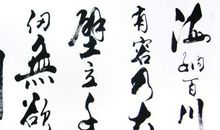 海納百川
有容乃大
壁立千
仞無欲